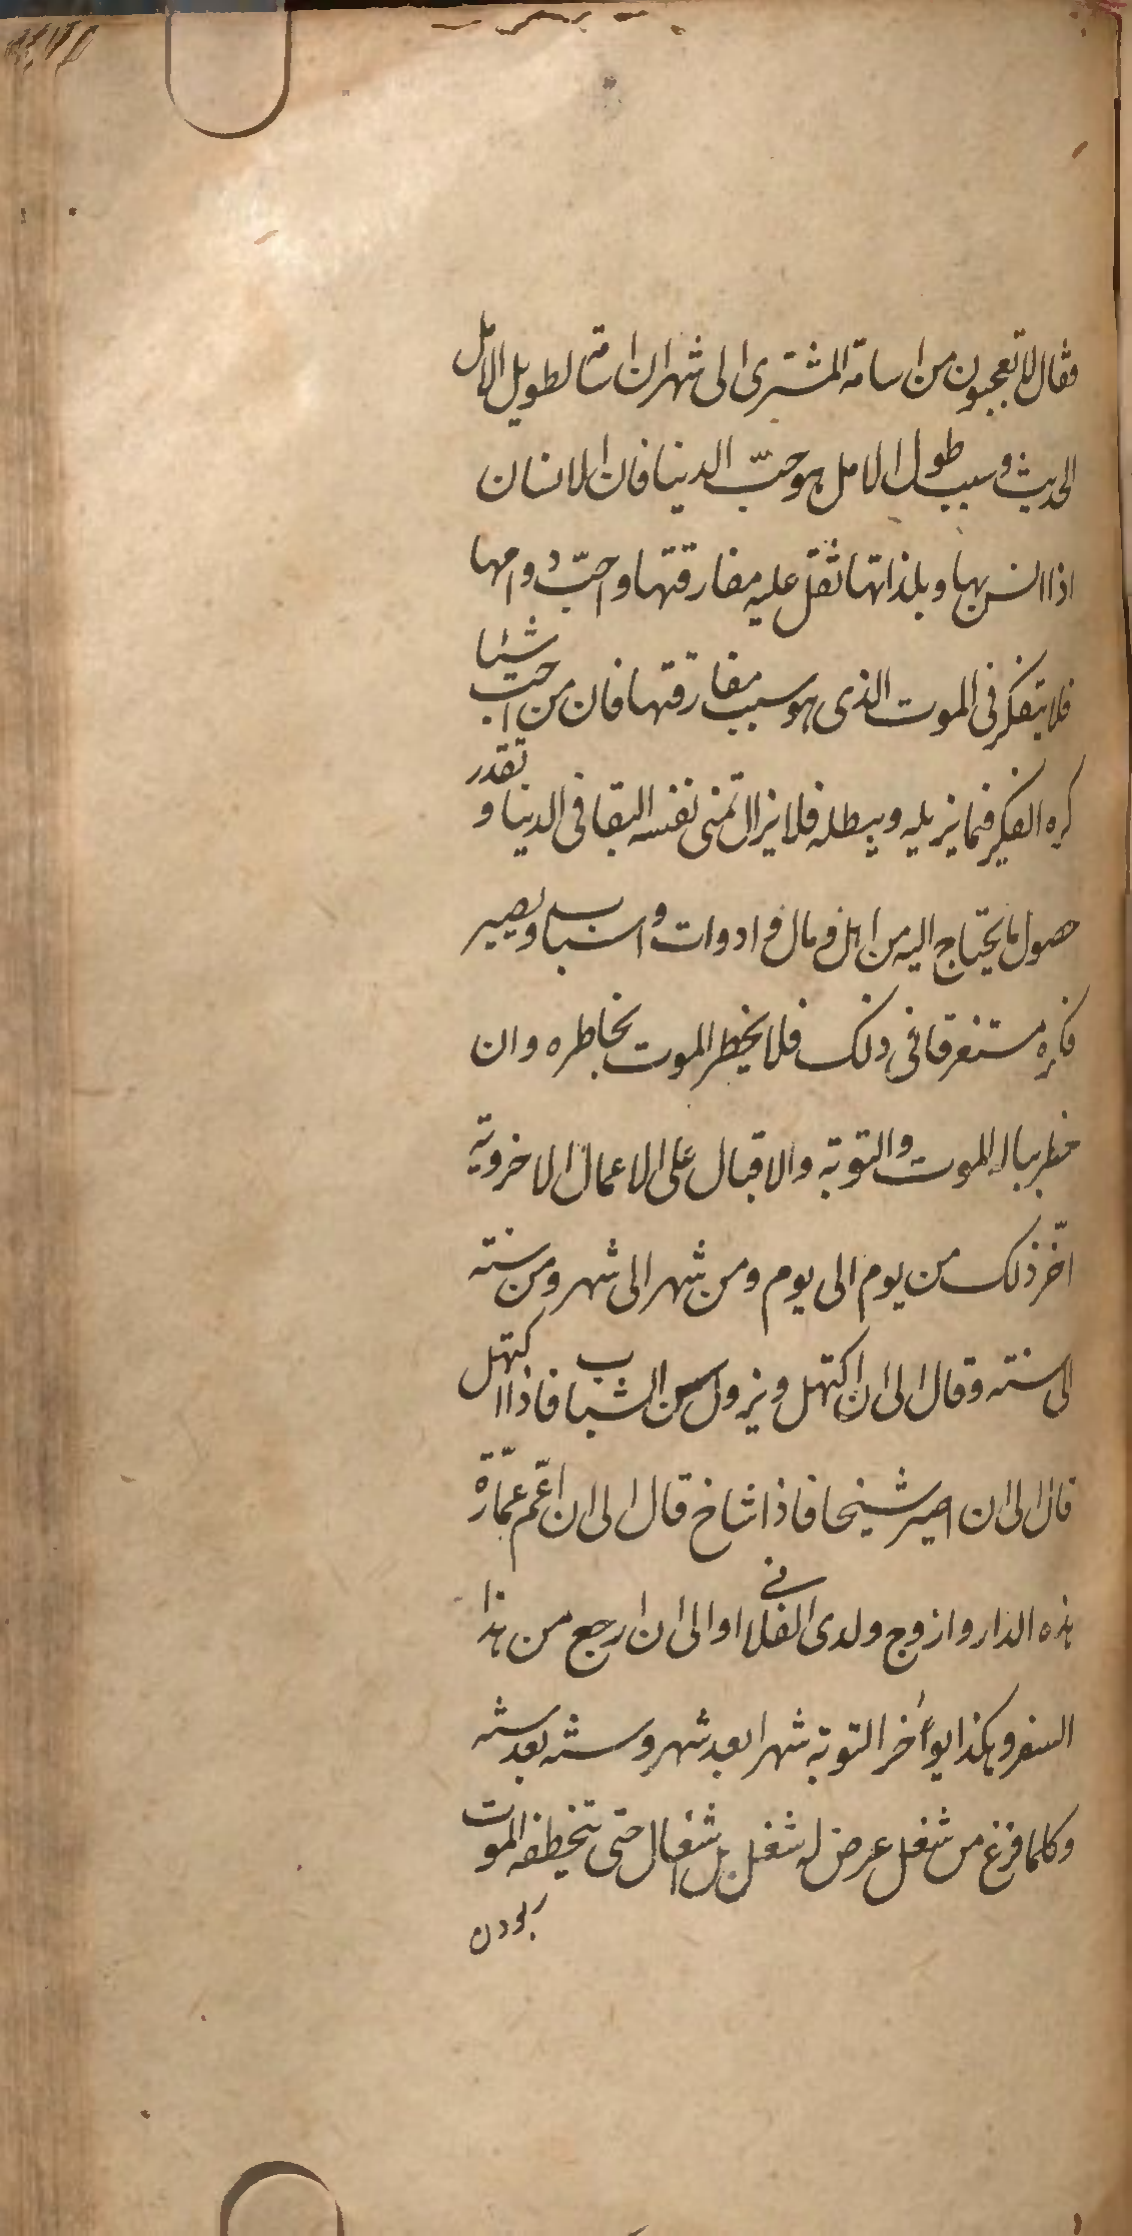 فقال لا تعجبون من اسامة المشترى الى شهر ان اسامة لطويل الامل
الحديث وسبب طول الامل هو حبّ الدينا فان الانسان
اذا انس بها و بلذاتها ثقل عليه مفارقتها و احبّ دوامها
فلا يتفكر فى الموت الذى هو سبب مفارقتها فان من احب شيئا
كره الفكر فيما يزيله ويبطله فلا يزال تمنى نفسه البقا فى الدينا و تقدر
حصول ما يحتاج اليه من اهل و مال و ادوات و اسباب و يصير
فكره مستغرقا فى ذلك فلا يخطر الموت بخاطره و ان
خطر بباله الموت و التوبة و الاقبال على الاعمال الاخروية
اخّر ذلك من يوم الى يوم و من شهر الى شهر و من سنته
الى سنته و قال الى ان اكتهل و يزول سن الشباب فاذا اكتهل
قال الى ان اصير شيخا فاذا شاخ قال الى ان اعّم عمّارة
هذه الدار و ازوج ولدى الفلانى او الى ان ارجع من هذا
السفر و هكذا يؤاخر التوبة شهرا بعد شهر و سنته بعد سنته
و كلما فرغ من شغل عرض له شغل بل اشغال حتى تتخطفه الموت
ربودن